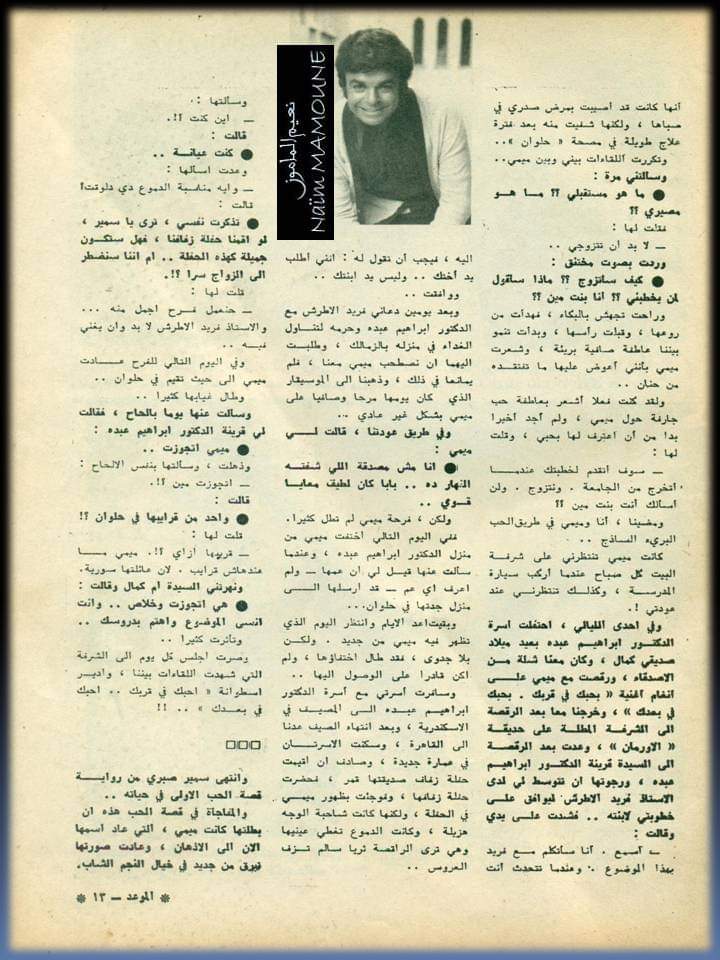 أنها كانت قد أصيبت بمرض صدري في
صباها ، ولكنها شفيت منه بعد فترة
علاج طويلة في مصحة « حلوان »..
وتكررت اللقاءات بيني وبين ميمي..
وسالتني مرة :
● ما هو مستقبلي ؟؟ مـا هــو
مصيري ؟؟
فقلت لها :
ــ لا بد أن تتزوجي ..
وردت بصوت مختنق :
● كيف سأتزوج ؟؟ ماذا ساقول
لمن يخطبني ؟؟ أنا بنت مين ؟؟
وراحت تجهش بالبكاء ، فهدأت من
روعها ، وقبلت رأسها ، وبدات تنمو
بيننا عاطفة صافية بريئة ، وشعرت
ميمي بأنني أعوض عليها ما تفتقـده
من حنان ..
ولقد كنت فعلا أشعر بعاطفة حب
جارفة حول ميمي ، ولم أجد أخيرا
بدا من أن اعترف لها بحبي ، وقلت
لها :
ــ سوف أتقدم لخطبتك عندمـا
أتخرج من الجامعة . ونتزوج . ولن
أسالك أنت بنت مين ؟؟
ومضينا ، أنا وميمي في طريق الحب
البريء الساذج ..
كانت ميمي تنتظرني على شرفـة
البيت كل صباح عندما أركب سيارة
المدرسـة ، وكذلـك تنتظرني عند
عودتي !.
وفي احدى الليالي ، احتفلت أسرة
الدكتـور ابراهيـم عبده بعيد ميلاد
صديقي كمال ، وكان معنا شلة مـن
الاصدقاء ، ورقصت مع ميمي علـى
انغام أغنية « بحبك في قربك . بحبك
في بعدك » ، وخرجنا معا بعد الرقصة
الى الشرفـة المطلـة على حديقـة
« الاورمان » ، وعدت بعد الرقصـة
الى السيدة قرينة الدكتـور ابراهيـم
عبده ، ورجوتها ان تتوسط لي لدى
الاستاذ فريد الاطرش ليوافق علـى
خطوبتي لابنته .. فشدت على يدي
وقالت :
ــ أسمع . أنا سأتكلم مـع فريد
بهذا الموضوع . وعندما نتحدث أنت
اليه ، فيجب أن تقول له : انني أطلب
يد أختك .. وليس يد ابنتك ..
ووافقت ..
وبعد يومين دعاني فريد الاطرش مع
الدكتور ابراهيم عبده وحرمه لتنـاول
الغداء في منزله بالزمالك ، وطلبـت
اليهما ان نصطحب ميمي معنا ، فلم
يمانعا في ذلك ، وذهبنا الى الموسيقار
الذي كان يومها مرحا وصافيا على
ميمي بشكل غير عادي ..
وفي طريق عودتنا ، قالت لــي
ميمي :
● انا مش مصدقة اللي شفتــه
النهار ده .. بابا كان لطيف معايـا
قـوي ..
ولكن ، فرحة ميمي لم تطل كثيرا.
ففي اليوم التالي اختفت ميمي من
منزل الدكتور ابراهيم عبده ، وعندما
سألت عنها قيل لي ان عمها ــ ولم
اعرف اي عم ــ قد أرسلها الـــى
منزل جدتها في حلوان...
وبقيت اعد الايام وانتظر اليوم الذي
تظهر فيه ميمي من جديد . ولكـن
بلا جدوى ، فقد طال اختفاؤها ، ولم
اكن قادرا على الوصول اليها ..
وسافرت أسرتي مع أسرة الدكتور
ابراهيـم عبـده الـى المصيـف في
الاسكندرية ، وبعد انتهاء الصيف عدنا
الى القاهرة ، وسكنت الاسرتــان
في عمارة جديدة ، وصادف ان اقيمت
حفلة زفاف صديقتها قمر ، فحضرت
حفلة زفافها ، وفوجئت بظهور ميمـي
في الحفلة ، ولكنها كانت شاحبة الوجه
هزيلة ، وكانت الدموع تغطي عينيها
وهي ترى الراقصة ثريا سالم تـزف
العروس ..
نعيم المامون
Naïm MAMOUNE
وسـألتها :
ــ اين كنت ؟!.
قالت :
● كنت عيانـة ..
وعدت اسالها :
ــ وايه مناسبة الدموع دي دلوقت؟
قالت :
● تذكرت نفسي ، ترى يا سمير ،
لو اقمنا حفلة زفافنا ، فهل ستكـون
جميلة كهذه الحفلة .. ام اننا سنضطر
الى الزواج سرا ؟!.
قلت لها :
ــ حنعمل فـرح اجمل منه ...
والاستاذ فريد الاطرش لا بد وان يغني
فيـه ..
وفي اليوم التالي للفرح عــادت
ميمي الى حيث تقيم في حلوان ..
وطال غيابها كثيرا ..
وسالت عنها يوما بالحاح ، فقالت
لي قرينة الدكتور ابراهيم عبده :
● ميمي اتجوزت ..
وذهلت ، وسـألتها بنفس الالحاح :
ــ اتجوزت مين ؟!.
قالت :
● واحد من قرايبها في حلوان ؟!
قلت لها :
ــ قريبها ازاي ؟!. ميمي مــا
عندهاش قرايب . لان عائلتها سورية.
ونهرتني السيدة ام كمال وقالت :
● هي اتجوزت وخلاص .. وانت
انسى الموضوع واهتم بدروسك ..
وتأثرت كثيرا ..
وصرت اجلس كل يوم الى الشرفة
التي شهدت اللقاءات بيننا ، واديـر
اسطوانة « احبك في قربك .. احبك
في بـعـدك » .. !!
□□□
وانتهى سمير صبري من روايــة
قصة الحب الاولى في حياته ..
والمفاجأة في قصة الحب هذه ان
بطلتها كانت ميمي ، التي عاد اسمها
الان الى الاذهان ، وعادت صورتها
تبرق من جديد في خيال النجم الشاب.
* الموعد ــ ١٣ *